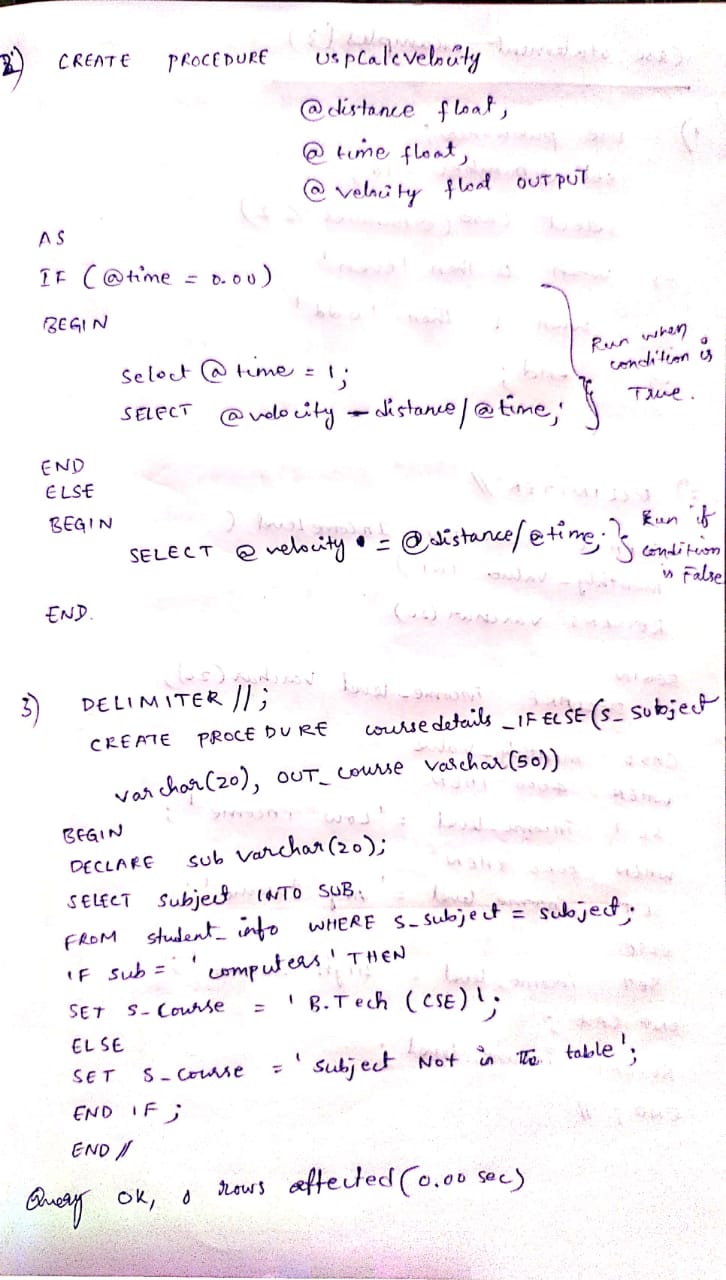 2) CREATE PROCEDURE uspCalcvelocity
@distance float,
@ time float,
@ velocity float OUTPUT
AS
IF (@time = 0.00)
BEGIN
Select @ time = 1;
SELECT @velocity - distance/@time;
} Run when condition is True.
END
ELSE
BEGIN
SELECT @ velocity = @distance/@time;
} Run if condition is False
END.
3) DELIMITER //;
CREATE PROCEDURE coursedetails_IF ELSE(s_subject
varchar(20), OUT_course varchar(50))
BEGIN
DECLARE sub varchar(20);
SELECT subject INTO SUB;
FROM student_info WHERE s_subject = subject;
IF sub = 'computers' THEN
SET s-course = 'B.Tech (CSE)';
ELSE
SET s-course = 'subject Not in the table';
END IF;
END //
Query OK, 0 rows affected (0.00 sec)